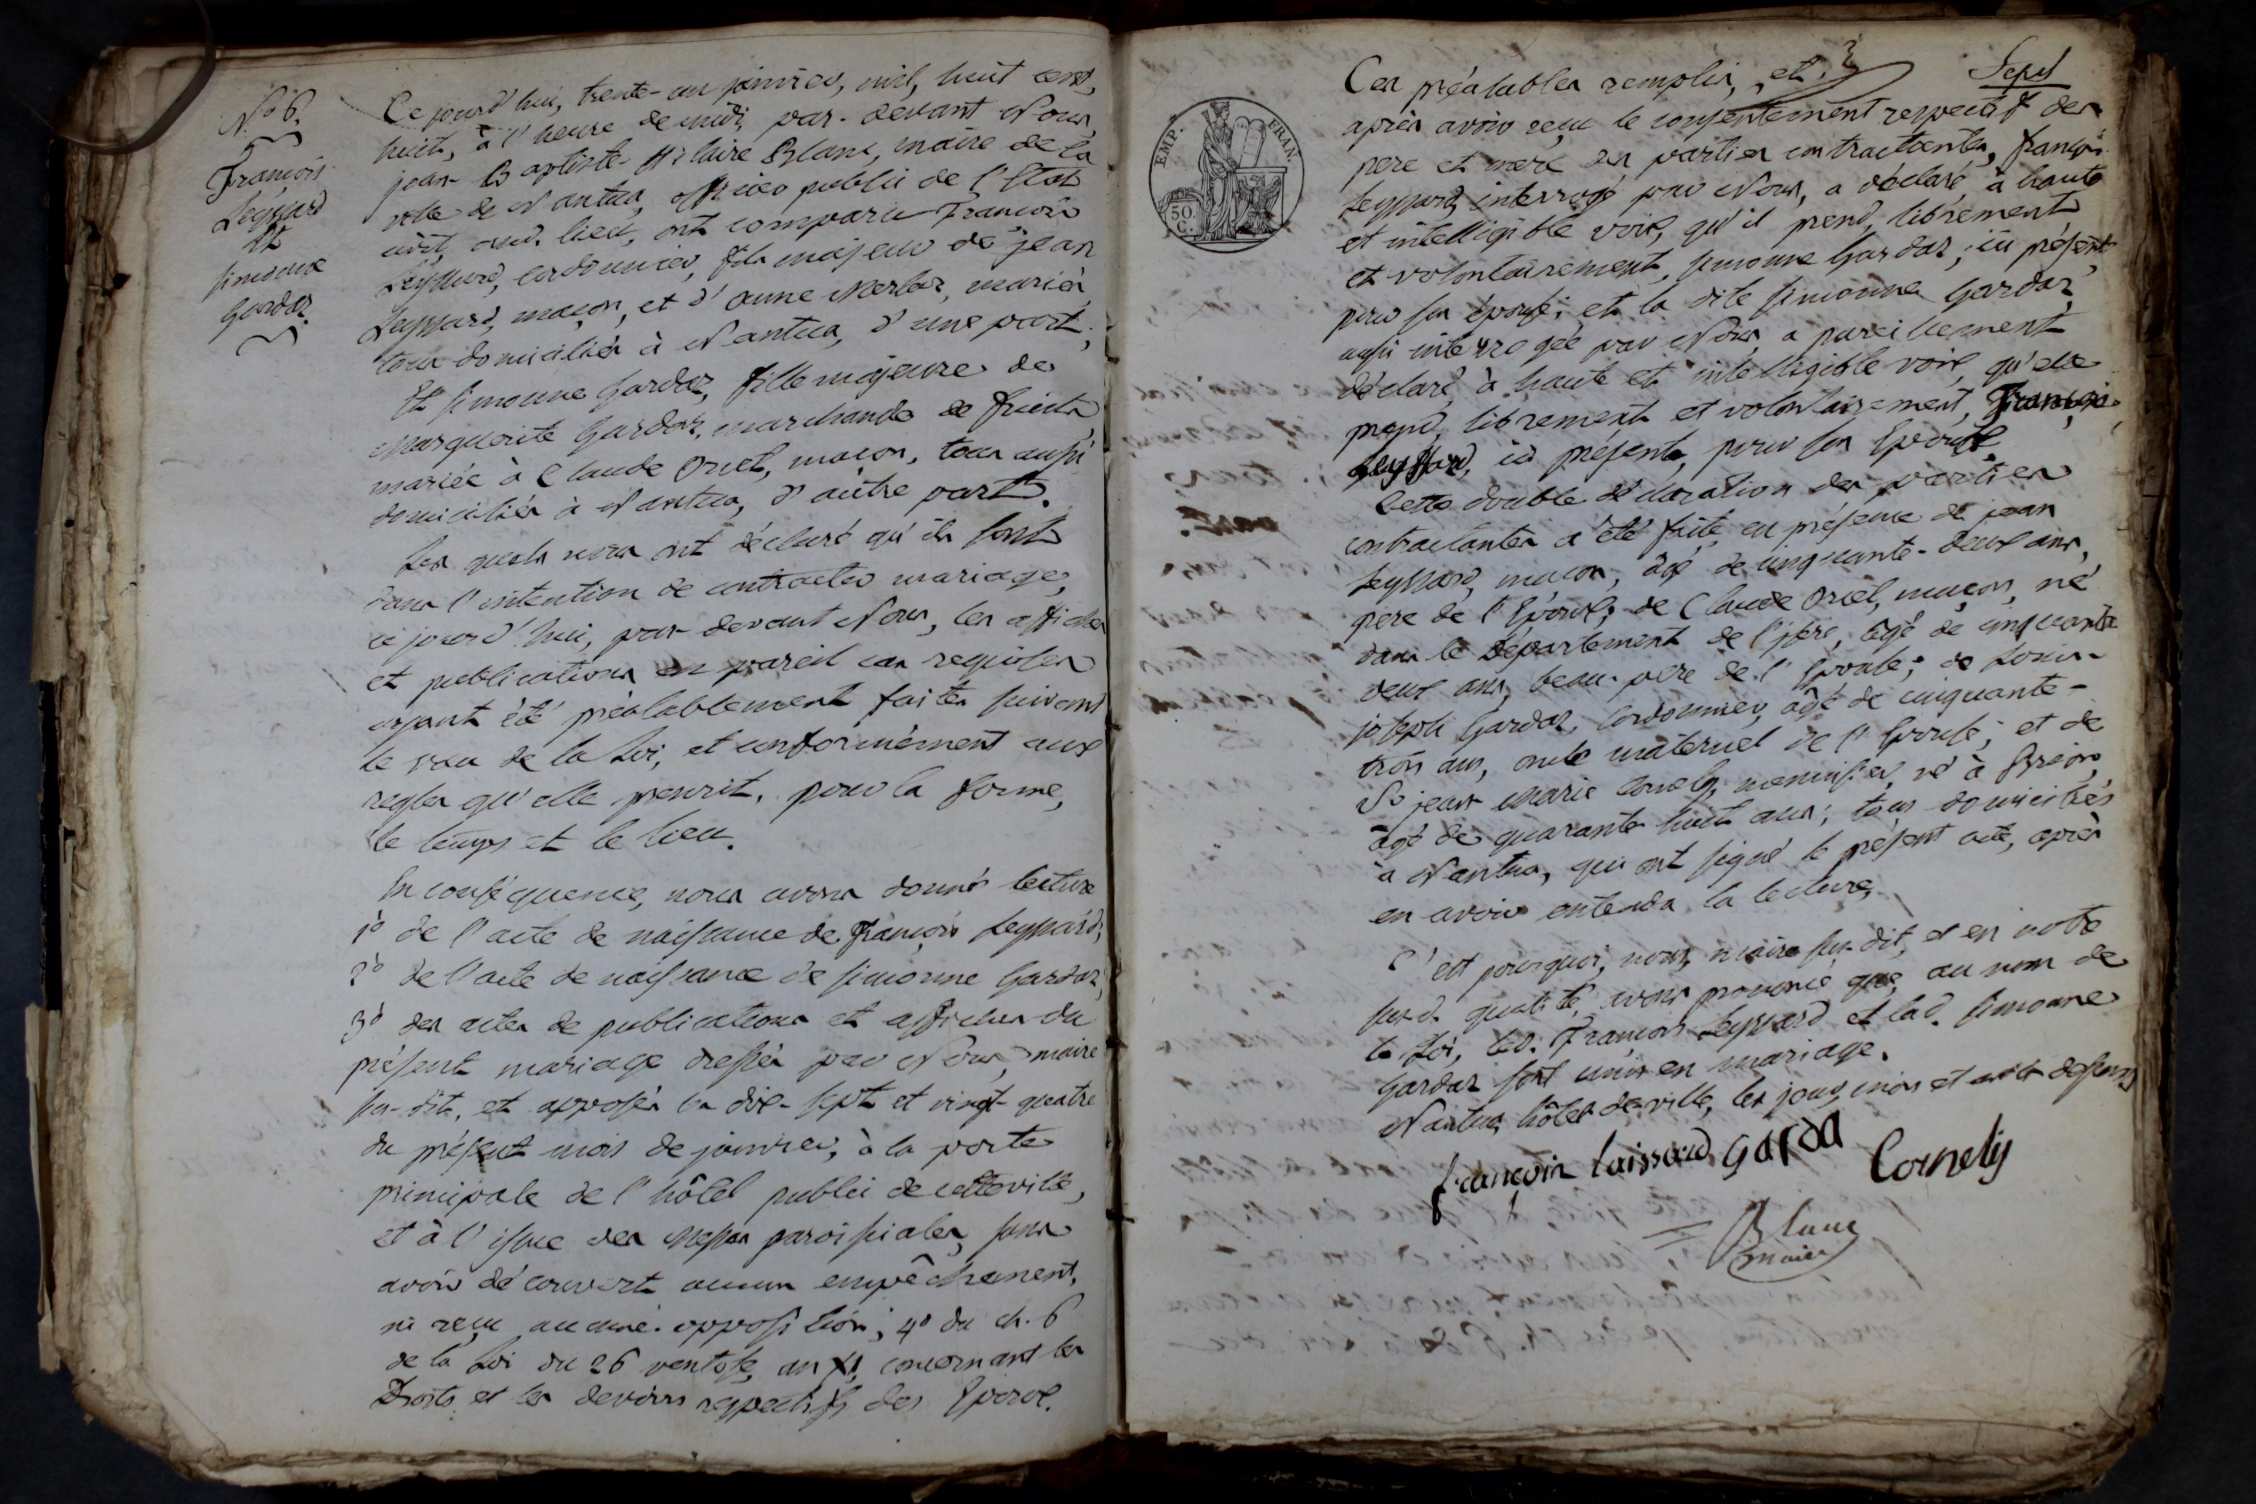 N.° 6.
François
Leyssard
Et
Simonne
Gardaz.
Ce jourd'hui, trente-un janvier, mil, huit cent,
huit, à l'heure de midi, par-devant Nous,
jean-Baptiste-Hilaire Blanc, maire de la
ville de Nantua, officier public de l'Etat
civil, aud. lieu, ont comparu François
Leyssard, cordonnier, fils majeur de jean
Leyssard, maçon, et d'anne Merlaz, mariés,
tous domiciliés à Nantua, d'une part;
Et Simonne Gardaz, fille majeure de
Marguerite Gardaz, marchande de fruits,
mariée à Claude Oriel, maçon, tous aussi
domiciliés à Nantua, d'autre part.
Les quels nous ont déclaré qu'ils sont
dans l'intention de contracter mariage,
ce jourd'hui, par-devant Nous, les affiches
et publications en pareil cas requises
ayant été préalablement faites suivant
le vœu de la Loi, et conformément aux
regles qu'elle prescrit, pour la forme,
le temps et le lieu.
En conséquence, nous avons donné lecture
1.° de l'acte de naissance de françois Leyssard;
2.° de l'acte de naissance de simonne Gardaz;
3.° des actes de publications et affiches du
présent mariage dressés par Nous, maire
sus-dit, et apposés les dix-sept et vingt-quatre
du présent mois de janvier, à la porte
principale de l'hôtel public de cette ville,
et à l'issue des Messes paroissiales, sans
avoir découvert aucun empêchement,
ni reçu aucune opposition; 4° du ch. 6
de la Loi du 26 ventose, an XI, concernant les
Droits et les devoirs respectifs des Epoux.
Sept
EMP. FRAN.
50.
C.
Ces préalables remplis, et
après avoir reçu le consentement respectif des
pere et mere des parties contractantes, françois
Leyssard, interrogé par Nous, a déclaré, à haute
et intelligible voix, qu'il prend, librement
et volontairement, simonne Gardaz, ici présente,
pour son épouse; et la dite simonne Gardaz,
aussi interrogée par Nous, a pareillement
déclaré, à haute et intelligible voix, qu'elle
prend, librement et volontairement, François
Leyssard, ici présent, pour son Epoux.
Cette double déclaration des parties
contractantes a été faite en présence de jean
Leyssard, maçon, âgé de cinquante-deux ans,
pere de l'Epoux; de Claude Oriel, maçon, né
dans le département de l'jsère, âgé de cinquante
deux ans, beau-pere de l'Epouse; de Louis-
joseph Gardaz, cordonnier, âgé de cinquante-
trois ans, oncle maternel de l'Epouse; et de
S.r jean Marie Cornely, menuisier, né à Brion,
âgé de quarante huit ans; tous domiciliés
à Nantua, qui ont signé le présent acte, après
en avoir entendu la lecture.
C'est pourquoi, nous, maire sus-dit, et en notre
susd. qualité, avons prononcé que, au nom de
la Loi, led. François Leyssard et lad. Simonne
Gardaz sont unis en mariage.
Nantua, hôtel de ville, les jour, mois et an ci-dessus
françoin laissard Garda Cornely
Blanc
maire